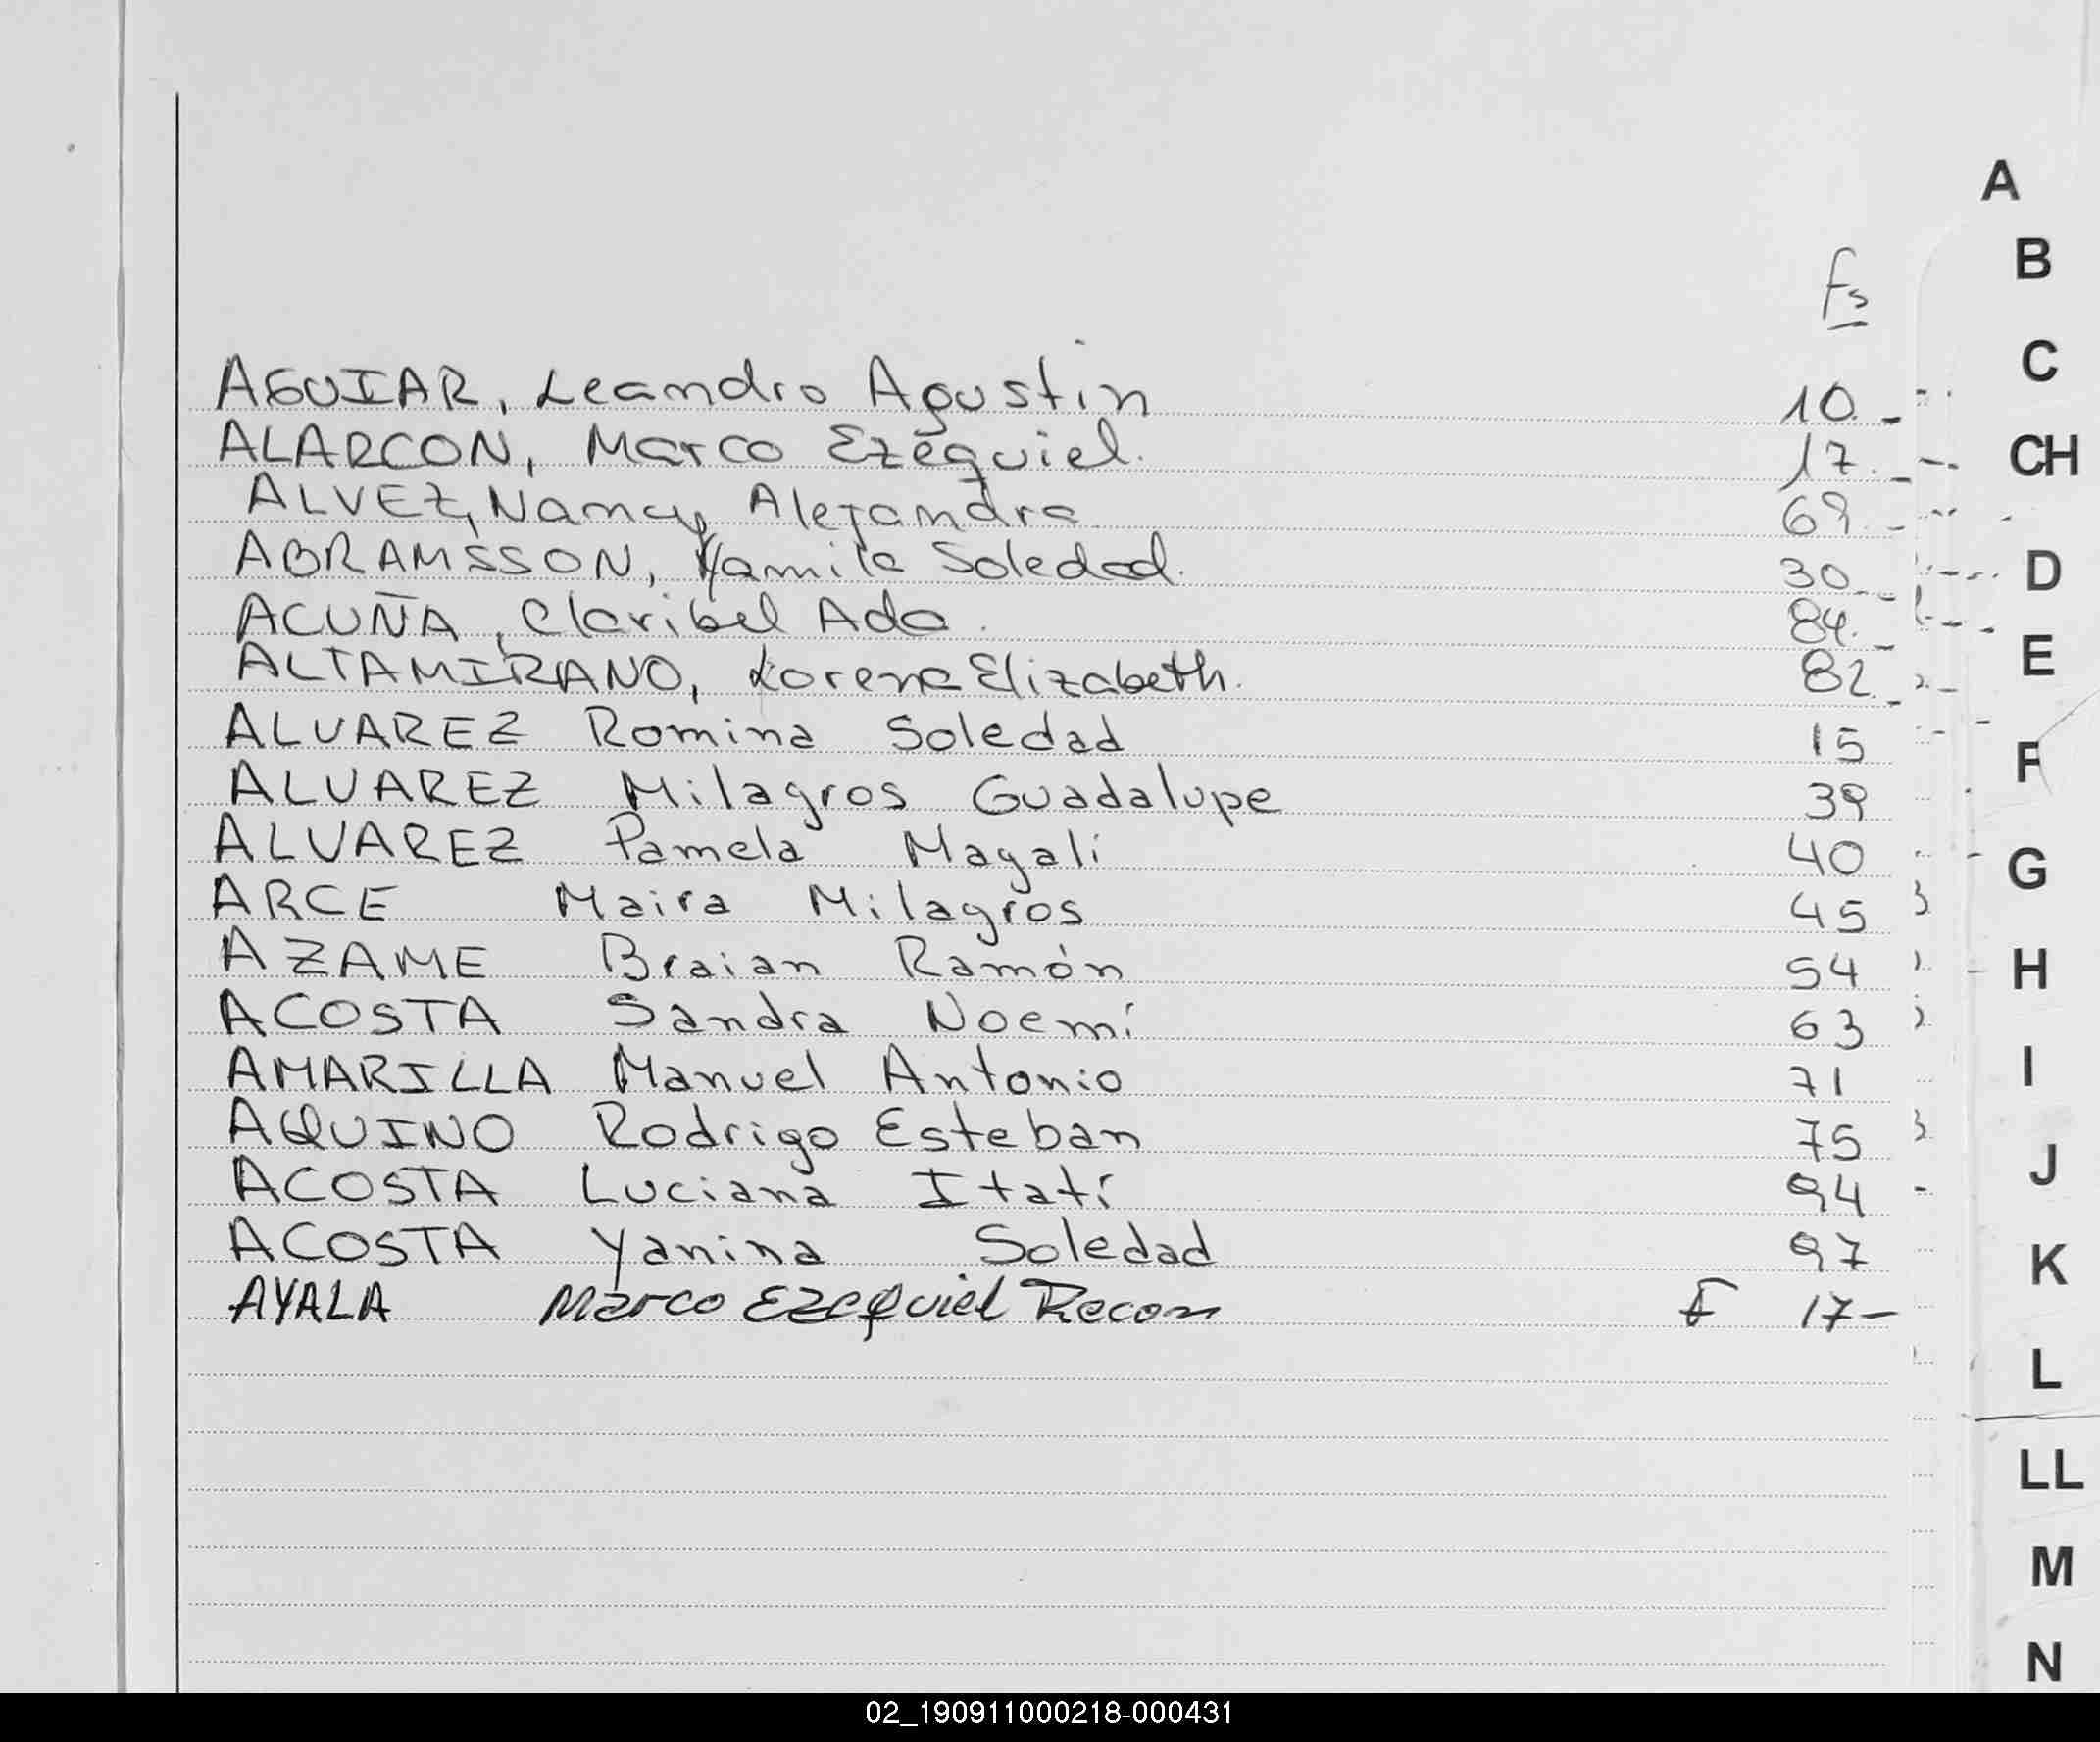 Fs
AGUIAR, Leandro Agustin 10.-
ALARCON, Marco Ezequiel. 17.-
ALVEZ, Nancy Alejandra 69.-
ABRAMSSON, Yamila Soledad. 30.-
ACUÑA, Claribel Ada. 84.-
ALTAMIRANO, Lorena Elizabeth. 82.-
ALVAREZ Romina Soledad 15
ALVAREZ Milagros Guadalupe 39
ALVAREZ Pamela Magalí 40
ARCE Maira Milagros 45
AZAME Braian Ramón 54
ACOSTA Sandra Noemí 63
AMARILLA Manuel Antonio 71
AQUINO Rodrigo Esteban 75
ACOSTA Luciana Itatí 94
ACOSTA Yanina Soledad 97
AYALA Marco Ezequiel Recon F 17-
A
B
C
CH
D
E
F
G
H
I
J
K
L
LL
M
N
02_190911000218-000431